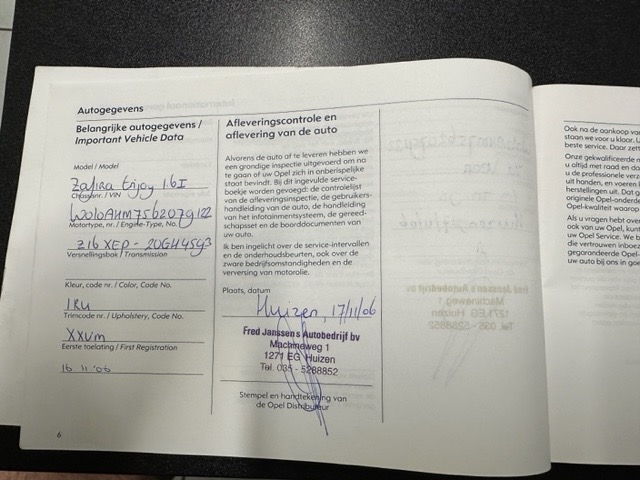 Autogegevens
Belangrijke autogegevens /
Important Vehicle Data
Model / Model
Zafira Enjoy 1.6I
Chassisnr. / VIN
W0L0AHM7562079122
Motortype, nr. / Engine-Type, No.
Z16 XEP - 20GH4593
Versnellingsbak / Transmission
Kleur, code nr. / Color, Code No.
1RU
Trimcode nr. / Upholstery, Code No.
XXUm
Eerste toelating / First Registration
16 11 '06
6
Afleveringscontrole en
aflevering van de auto
Alvorens de auto af te leveren hebben we
een grondige inspectie uitgevoerd om na
te gaan of uw Opel zich in onberispelijke
staat bevindt. Bij dit ingevulde service-
boekje worden gevoegd: de controlelijst
van de afleveringsinspectie, de gebruikers-
handleiding van de auto, de handleiding
van het infotainmentsysteem, de gereed-
schapsset en de boorddocumenten van
uw auto.
Ik ben ingelicht over de service-intervallen
en de onderhoudsbeurten, ook over de
zware bedrijfsomstandigheden en de
verversing van motorolie.
Plaats, datum
Huizen, 17/11/06
Fred Janssen's Autobedrijf bv
Machineweg 1
1271 EG Huizen
Tel. 035 - 5288852
Stempel en handtekening van
de Opel Distributeur
Ook na de aankoop van
staan we voor u klaar. U
beste service. Daar zett
Onze gekwalificeerde m
u altijd met raad en da
u de professionele verz
uit handen, en voeren
herstellingen uit. Dat g
originele Opel-onderde
Opel-kwaliteit waarop
Als u vragen hebt over
ook van uw Opel, kunt
uw Opel Service. We b
die vertrouwen inboez
gegarandeerde Opel-
uw auto bij ons in goe